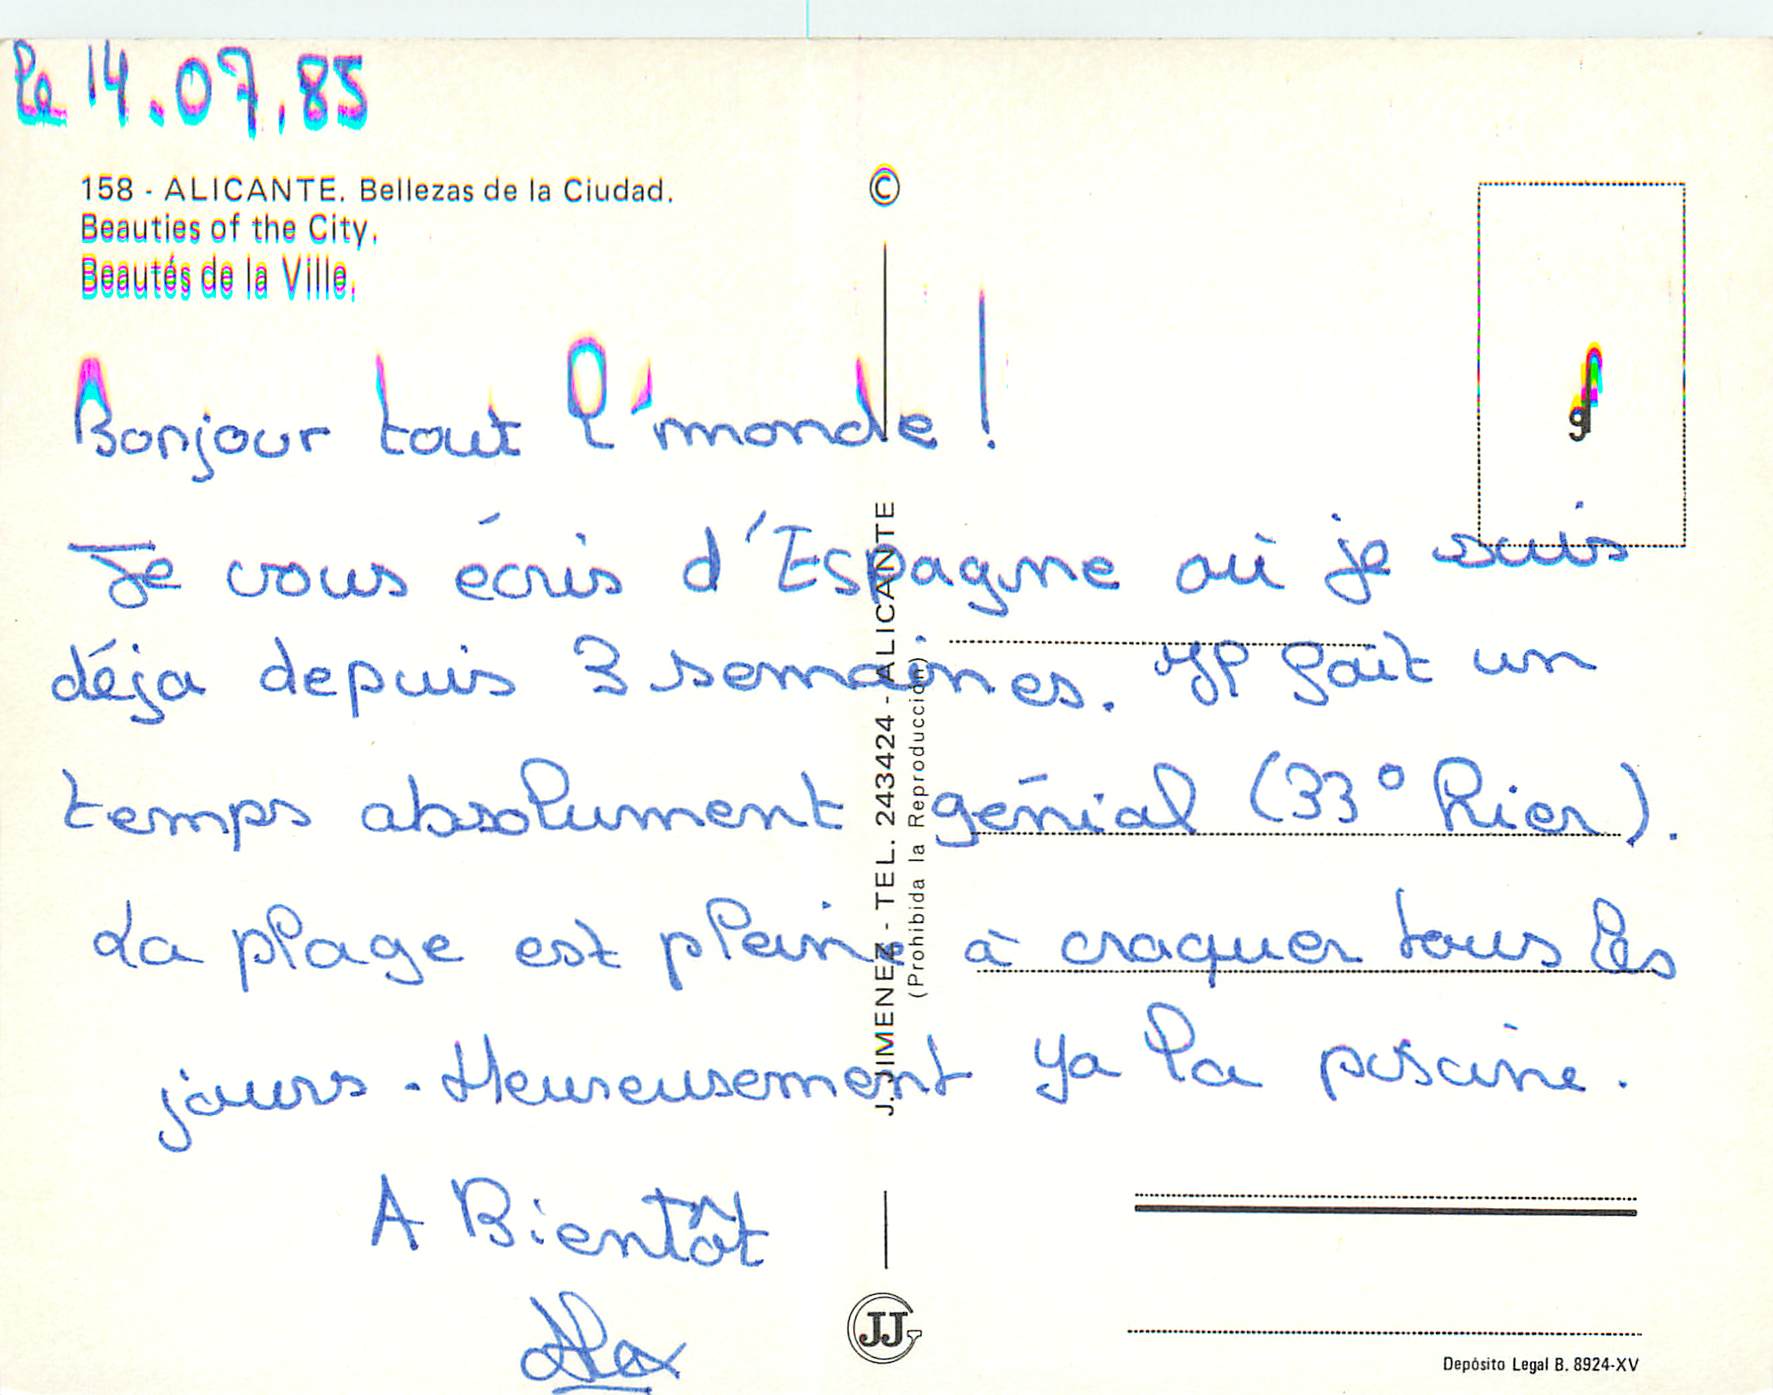 le 14.07.85
158 - ALICANTE. Bellezas de la Ciudad.
Beauties of the City.
Beautés de la Ville.
©
Bonjour tout l'monde !
Je vous écris d'Espagne où je suis
déja depuis 3 semaines. Il fait un
temps absolument génial (33° hier).
La plage est pleine à craquer tous les
jours. Heureusement ya la piscine.
A Bientôt
Alex
J. JIMENEZ - TEL. 243424 - ALICANTE
(Prohibida la Reproducción)
JJ
Depósito Legal B. 8924-XV